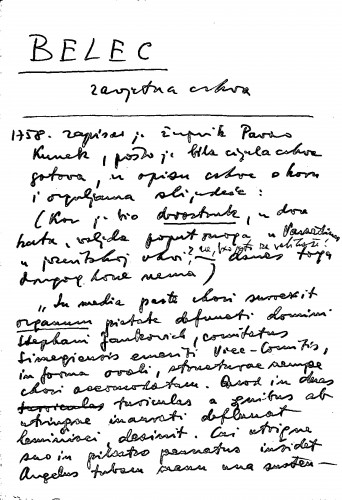 BELEC
zavjetna crkva
1758. zapisao je župnik Pavao
Kunek, pošto je bila cijela crkva
gotova, u opisu crkve o koru
i orguljama slijedeće:
(Kor je bio dvostruk, u dva
kata, valjda poput onoga u Varaždinu
u
crkvi danas toga
drugog kora nema)
"In media parte chori surrexit
organum pietate defuncti domini
Stephani Jankovich, comitatus
Simegiensis emeriti Vice-Comitis,
in forma ovali, structurae nempe
chori accomodatum. Quod in duas
turriculas a quibus ab
utrinque inaurati defluunt
lemnisci, desinit. Cui utrique
suo in pilastro pennatus insidet
Angelus tubam manu una susten-